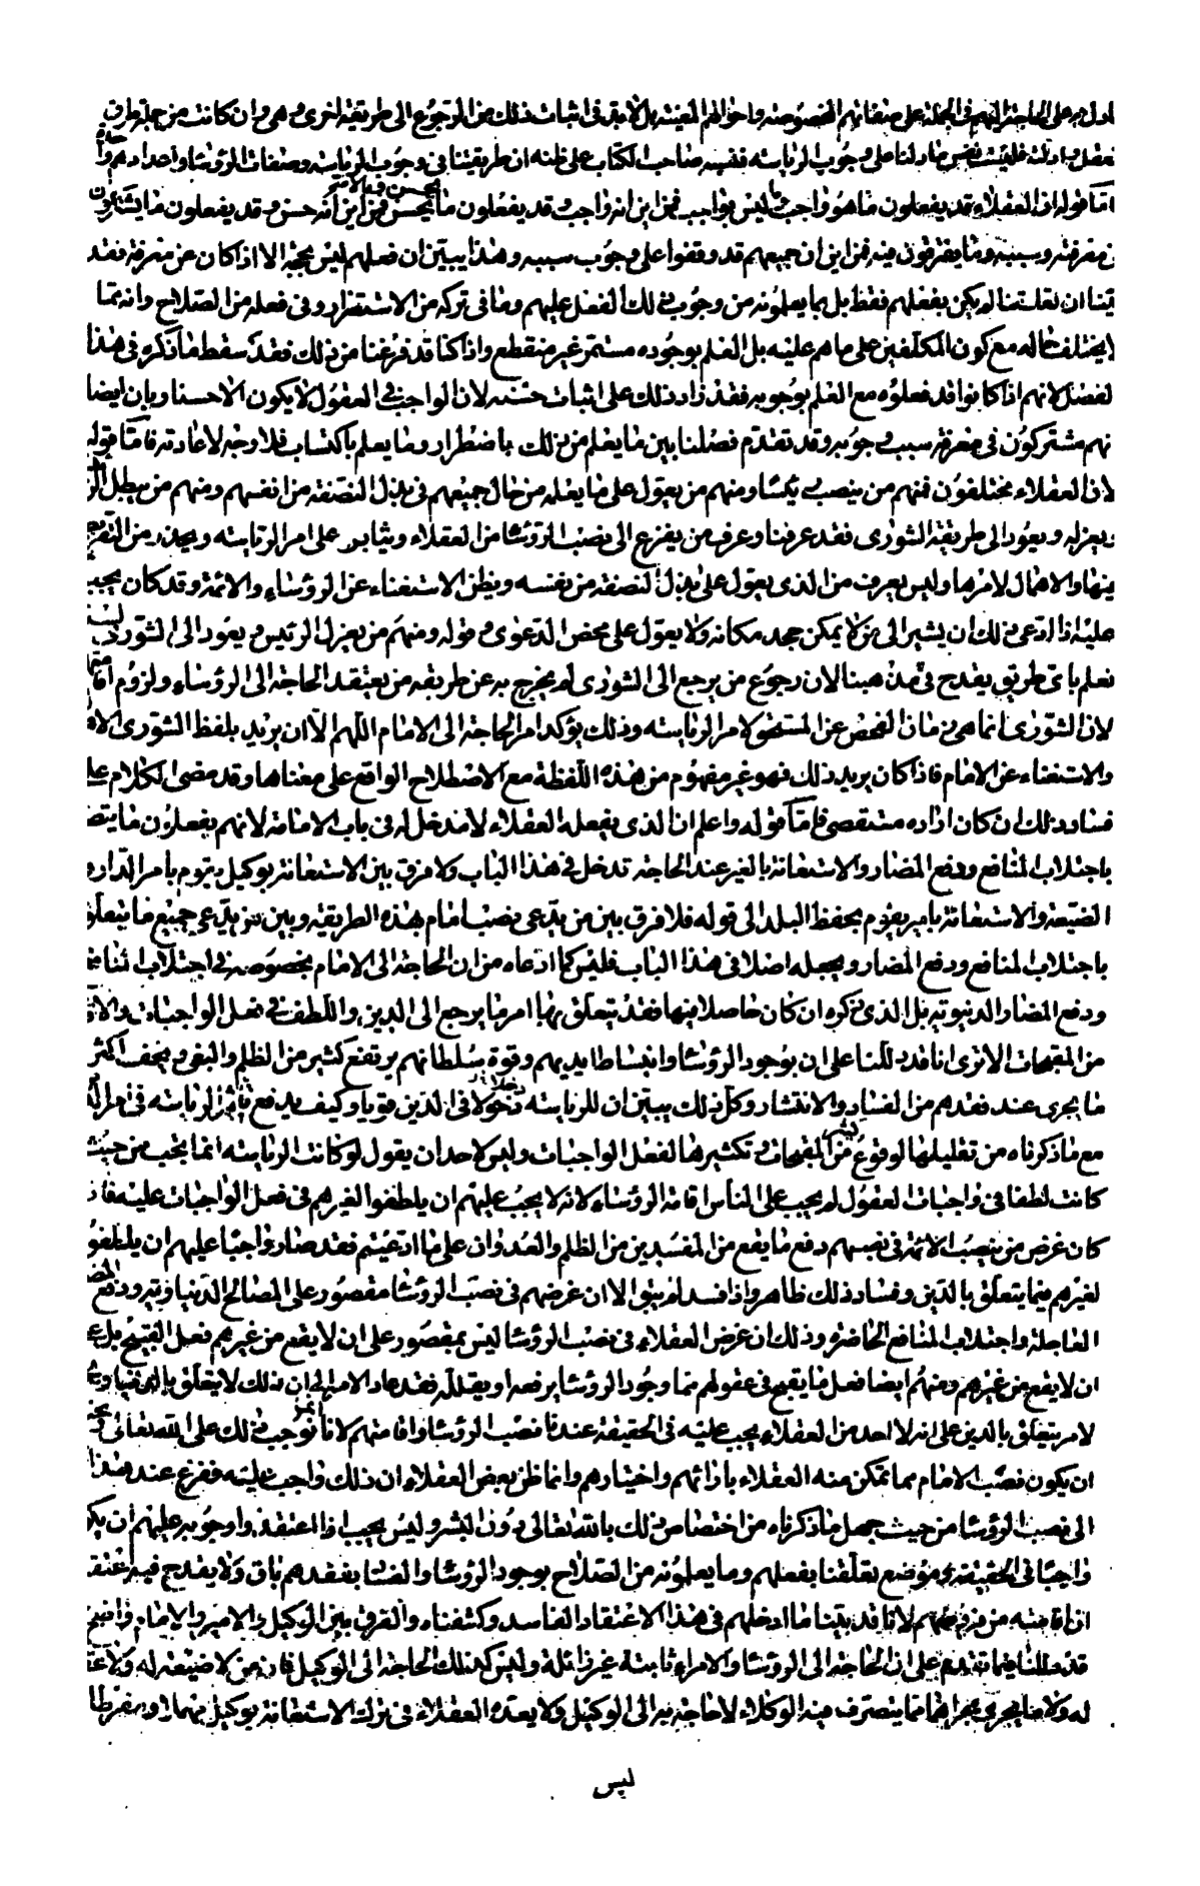 ادل به على الحاجة إليهم في الجملة على صفاتهم المخصوصة واحوالهم المعينة بل لا بد في اثبات ذلك من الرجوع الى طريقة اخرى وهي وان كانت من جملة طرق
العقل وادلته فليست نفس ما دلنا على وجوب الرياسة فنسبه صاحب الكتاب على ظنه ان طريقتنا في وجوب الرياسة وصفات الرؤسا واعدادهم
اما قوله ان العقلاء قد يفعلون ما هو واجب وما ليس بواجب فمن اين انه واجب وقد يفعلون ما يحسن وما لا يحسن فمن اين انه حسن وقد يفعلون ما يشتركون
في معرفته وسببه وما يفترقون فيه فمن اين ان جميعهم قد وقفوا على وجوب سببه وهذا يبين ان فعلهم ليس بحجة الا اذا كان عن معرفة فقد
بينا ان تعلقنا لم يكن بفعلهم فقط بل بما يعلمونه من وجوب ذلك الفعل عليهم وما في تركه من الاستضرار وفي فعله من الصلاح وانه مما
لا يختلف حاله مع كون المكلفين على ما هم عليه بل العلم بوجوده مستمر غير منقطع واذا كنا قد فرغنا من ذلك فقد سقط ما ذكره في هذا
الفصل لانهم اذا كانوا قد فعلوه مع العلم بوجوبه فقد زاد ذلك على اثبات حسنه لان الواجب في العقول لا يكون الا حسنا وبان ايضا
انهم مشتركون في معرفة سبب وجوبه وقد تقدم فصلنا بين ما يعلم من ذلك باضطرار وما يعلم باكتساب فلا وجه لاعادته فاما قوله
لان العقلاء مختلفون فمنهم من ينصب رئيسا ومنهم من يعول على ما يعلمه من حال جميعهم في بذل النصفة من انفسهم ومنهم من يبطل
ويعزله ويعود الى طريقة الشورى فقد عرفنا وعرف من يفزع الى نصب الرؤسا من العقلاء ويثابر على امر الرياسة ويحذر من التفريط
فيها والاهمال لامرها وليس يعرف من الذي يعول على بذل النصفة من نفسه ويظن الاستغناء عن الرؤساء والائمة وقد كان يجب
عليه اذا ادعى ذلك ان يشير الى من لا يمكن جحد مكانه ولا يعول على محض الدعوى وقوله ومنهم من يعزل الرئيس ويعود الى الشورى
نعلم باي طريق يقدح في مذهبنا لان رجوع من يرجع الى الشورى لم يخرج به عن طريقه من يعتقد الحاجة الى الرؤساء ولزوم اقامتها
لان الشورى انما هي زمان الفحص عن المستحق لامر الرياسة وذلك يؤكد امر الحاجة الى الامام اللهم الا ان يريد بلفظ الشورى
والاستغناء عن الامام فاذا كان يريد ذلك فهو غير مفهوم من هذه اللفظة مع الاصطلاح الواقع على معناها وقد مضى الكلام على
فساد ذلك ان كان اراده مستقصى فاما قوله واعلم ان الذي يفعله العقلاء لا مدخل له في باب الامامة لانهم يفعلون ما يتصل
باجتلاب المنافع ودفع المضار والاستعانة بالغير عند الحاجة تدخل في هذا الباب ولا فرق بين الاستعانة بوكيل يقوم بامر الدار و
الضيعة والاستعانة بامير يقوم بحفظ البلد الى قوله فلا فرق بين من يدعي نصب امام بهذه الطريقة وبين من يدعي جميع ما يتعلق
باجتلاب المنافع ودفع المضار ويجعله اصلا في هذا الباب فليس كما ادعاه من ان الحاجة الى الامام مخصوصة في اجتلاب المنافع
ودفع المضار الدنيوية بل الذي ذكره ان كان حاصلا فيها فقد يتعلق بها امر ما يرجع الى الدين واللطف في فعل الواجبات
من المقبحات الا ترى انا قد دللنا على ان بوجود الرؤسا وانبساط ايديهم وقوة سلطانهم يرتفع كثير من الظلم والبغي ويخف اكثر
ما يجري عند فقدهم من الفساد والانتشار وكل ذلك يبين ان للرياسة دخولا في الدين قويا وكيف يدفع تاثير الرياسة في امر
مع ما ذكرناه من تقليلها لوقوع كثير من المقبحات وتكثيرها لفعل الواجبات وليس لاحد ان يقول لو كانت الرياسة انما يجب من حيث
كانت لطفا في واجبات العقول لم يجب على الناس اقامة الرؤساء لانه لا يجب عليهم ان يلطفوا لغيرهم في فعل الواجبات عليه فان
كان غرض من ينصب الائمة في نصبهم دفع ما يقع من المفسدين من الظلم والعدوان على ما ادعيتم فقد صار واجبا عليهم ان يلطفوا
لغيرهم فيما يتعلق بالدين وفساد ذلك ظاهر واذا فسد لم يبق الا ان غرضهم في نصب الرؤسا مقصور على المصالح الدنياوية ودفع المضار
العاجلة واجتلاب المنافع الحاضرة وذلك ان غرض العقلاء في نصب الرؤسا ليس بمقصور على ان لا يقع من غيرهم فعل القبيح بل على
ان لا يقع من غيرهم ومنهم ايضا فعل ما يقبح في عقولهم مما وجود الرؤسا يرفعه او يقلله فقد عاد الامر الى ان ذلك لا يتعلق بالدنيا
لامر يتعلق بالدين على انه لا احد من العقلاء يجب عليه في الحقيقة عندنا نصب الرؤسا واقامتهم لانا انما نوجب ذلك على الله تعالى
ان يكون نصب الامام مما تمكن منه العقلاء بارائهم واختيارهم وانما ظن بعض العقلاء ان ذلك واجب عليه ففزع عند هذا
الى نصب الرؤسا من حيث جهل ما ذكرناه من اختصاص ذلك بالله تعالى دون البشر وليس يجب اذا اعتقدوا وجوبه عليهم ان يكون
واجبا في الحقيقة وموضع تعلقنا بفعلهم وما يعلمونه من الصلاح بوجود الرؤسا والفساد بفقدهم باق ولا يقدح فيه اعتقاد
ان اقامته من فروضهم لانا قد بينا ما ادخلهم في هذا الاعتقاد الفاسد وكشفناه والفرق بين الوكيل والامير والامام واضح
قد دللنا فيما تقدم على ان الحاجة الى الرؤسا والامراء ثابتة غير زائلة وليس كذلك الحاجة الى الوكيل فان من لا ضيعة له ولا عقار
له ولا ما يجري مجراهما مما يتصرف فيه الوكلاء لا حاجة به الى الوكيل ولا يعده العقلاء في ترك الاستعانة بوكيل مهملا ومفرطا
ليس